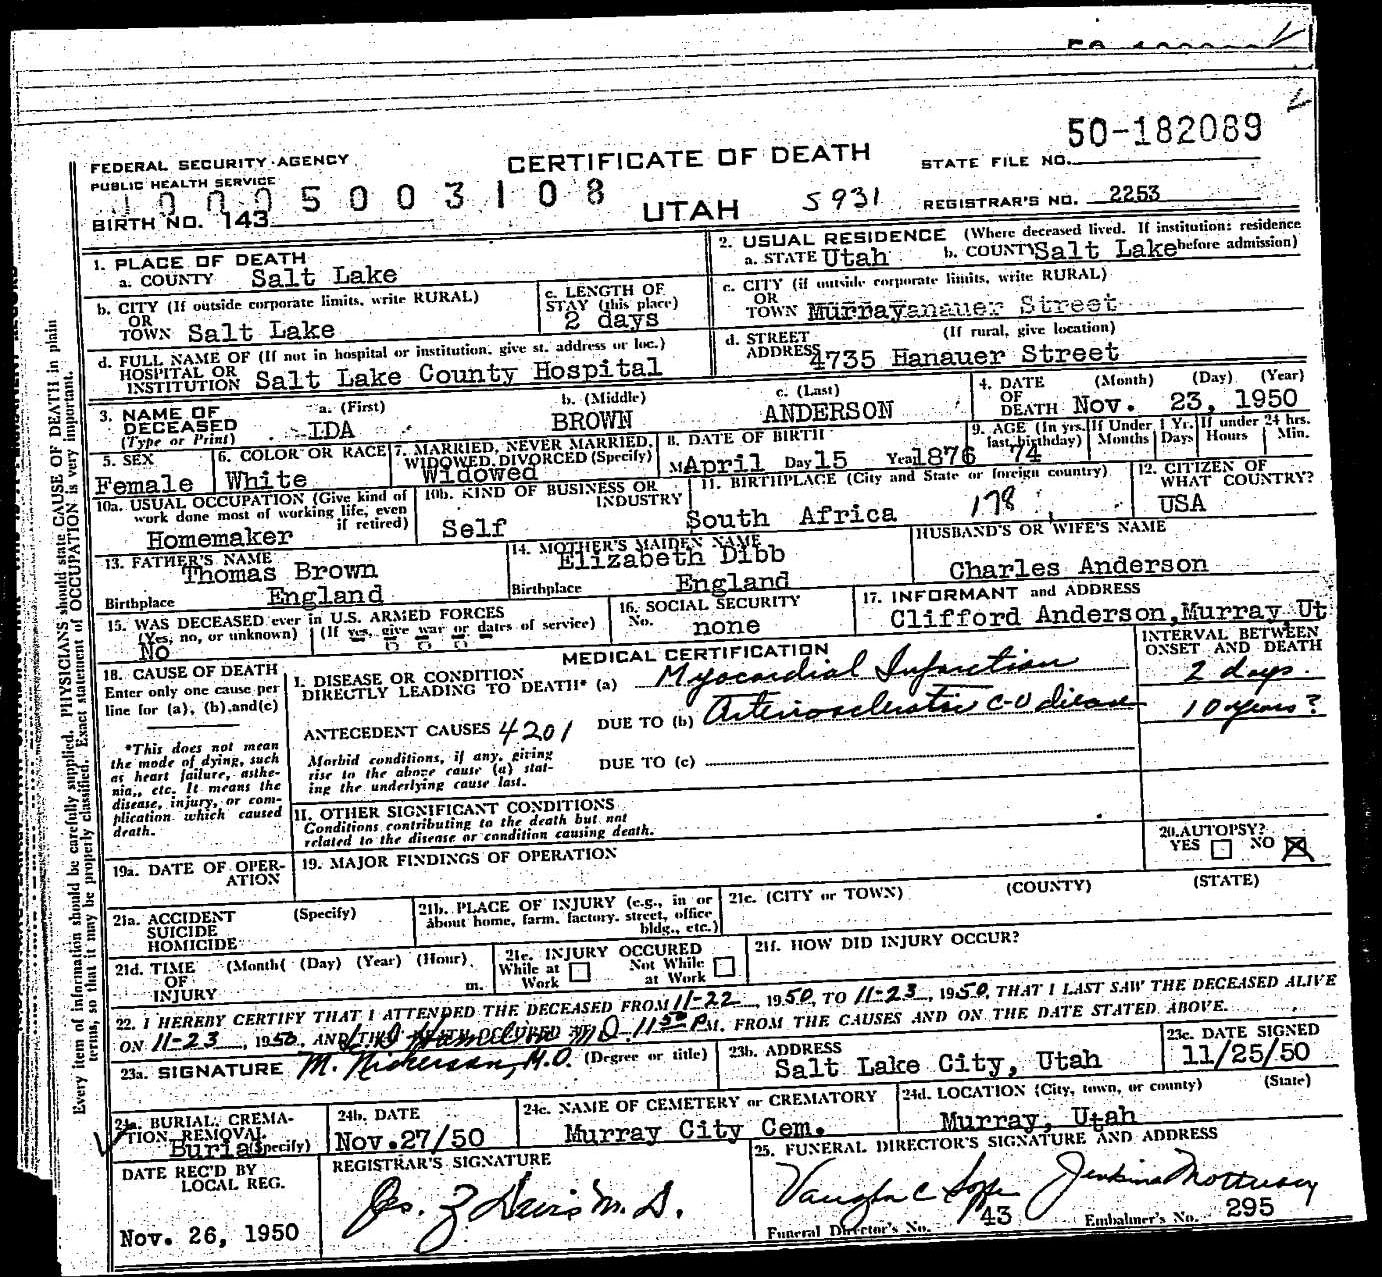 50-182089
FEDERAL SECURITY AGENCY
PUBLIC HEALTH SERVICE
CERTIFICATE OF DEATH
STATE FILE NO.
5003108
BIRTH NO. 143
UTAH
5931
REGISTRAR'S NO. 2253
1. PLACE OF DEATH
a. COUNTY Salt Lake
2. USUAL RESIDENCE (Where deceased lived. If institution: residence before admission)
a. STATE Utah b. COUNTY Salt Lake
b. CITY (If outside corporate limits, write RURAL)
OR
TOWN Salt Lake
c. LENGTH OF
STAY (this place)
2 days
c. CITY (if outside corporate limits, write RURAL)
OR
TOWN Murray anauer Street
d. FULL NAME OF (If not in hospital or institution, give st. address or loc.)
HOSPITAL OR
INSTITUTION Salt Lake County Hospital
d. STREET (If rural, give location)
ADDRESS 4735 Hanauer Street
3. NAME OF
DECEASED
(Type or Print)
a. (First)
IDA
b. (Middle)
BROWN
c. (Last)
ANDERSON
4. DATE (Month) (Day) (Year)
OF
DEATH Nov. 23, 1950
5. SEX
Female
6. COLOR OR RACE
White
7. MARRIED, NEVER MARRIED,
WIDOWED, DIVORCED (Specify)
Widowed
8. DATE OF BIRTH
M April Day 15 Year 1876
9. AGE (In yrs. last birthday)
74
If Under 1 Yr.
Months Days
If under 24 hrs.
Hours Min.
10a. USUAL OCCUPATION (Give kind of
work done most of working life, even
if retired)
Homemaker
10b. KIND OF BUSINESS OR
INDUSTRY
Self
11. BIRTHPLACE (City and State or foreign country)
178
South Africa
12. CITIZEN OF
WHAT COUNTRY?
USA
13. FATHER'S NAME
Thomas Brown
Birthplace England
14. MOTHER'S MAIDEN NAME
Elizabeth Dibb
Birthplace England
HUSBAND'S OR WIFE'S NAME
Charles Anderson
15. WAS DECEASED ever in U.S. ARMED FORCES
(Yes, no, or unknown) (If yes, give war or dates of service)
No
16. SOCIAL SECURITY
No. none
17. INFORMANT and ADDRESS
Clifford Anderson, Murray, Ut
18. CAUSE OF DEATH
Enter only one cause per
line for (a), (b), and (c)
*This does not mean
the mode of dying, such
as heart failure, asthe-
nia, etc. It means the
disease, injury, or com-
plication which caused
death.
MEDICAL CERTIFICATION
INTERVAL BETWEEN
ONSET AND DEATH
I. DISEASE OR CONDITION
DIRECTLY LEADING TO DEATH* (a) Myocardial Infarction
2 days.
ANTECEDENT CAUSES 4201 DUE TO (b) Arteriosclerotic C-V disease
10 years?
Morbid conditions, if any, giving
rise to the above cause (a) stat-
ing the underlying cause last.
DUE TO (c)
II. OTHER SIGNIFICANT CONDITIONS
Conditions contributing to the death but not
related to the disease or condition causing death.
19a. DATE OF OPER-
ATION
19. MAJOR FINDINGS OF OPERATION
20. AUTOPSY?
YES NO
21a. ACCIDENT (Specify)
SUICIDE
HOMICIDE
21b. PLACE OF INJURY (e.g., in or
about home, farm, factory, street, office
bldg., etc.)
21c. (CITY or TOWN) (COUNTY) (STATE)
21d. TIME (Month( (Day) (Year) (Hour)
OF
INJURY m.
21e. INJURY OCCURED
While at Work Not While at Work
21f. HOW DID INJURY OCCUR?
22. I HEREBY CERTIFY THAT I ATTENDED THE DECEASED FROM 11-22, 1950, TO 11-23, 1950, THAT I LAST SAW THE DECEASED ALIVE
ON 11-23, 1950, AND THAT DEATH OCCURED AT 11 50 P M. FROM THE CAUSES AND ON THE DATE STATED ABOVE.
Hamilton M.D.
23a. SIGNATURE M. Nickerson, M.D. (Degree or title)
23b. ADDRESS
Salt Lake City, Utah
23c. DATE SIGNED
11/25/50
24. BURIAL, CREMA-
TION, REMOVAL
(Specify)
Burial
24b. DATE
Nov.27/50
24c. NAME OF CEMETERY or CREMATORY
Murray City Cem.
24d. LOCATION (City, town, or county) (State)
Murray, Utah
DATE REC'D BY
LOCAL REG.
Nov. 26, 1950
REGISTRAR'S SIGNATURE
Jos. Z Davis M.D.
25. FUNERAL DIRECTOR'S SIGNATURE AND ADDRESS
Vaughn C Jenkins Mortuary
Funeral Director's No. 743
Embalmer's No. 295
Every item of information should be carefully supplied. PHYSICIANS should state CAUSE OF DEATH in plain
terms, so that it may be properly classified. Exact statement of OCCUPATION is very important.